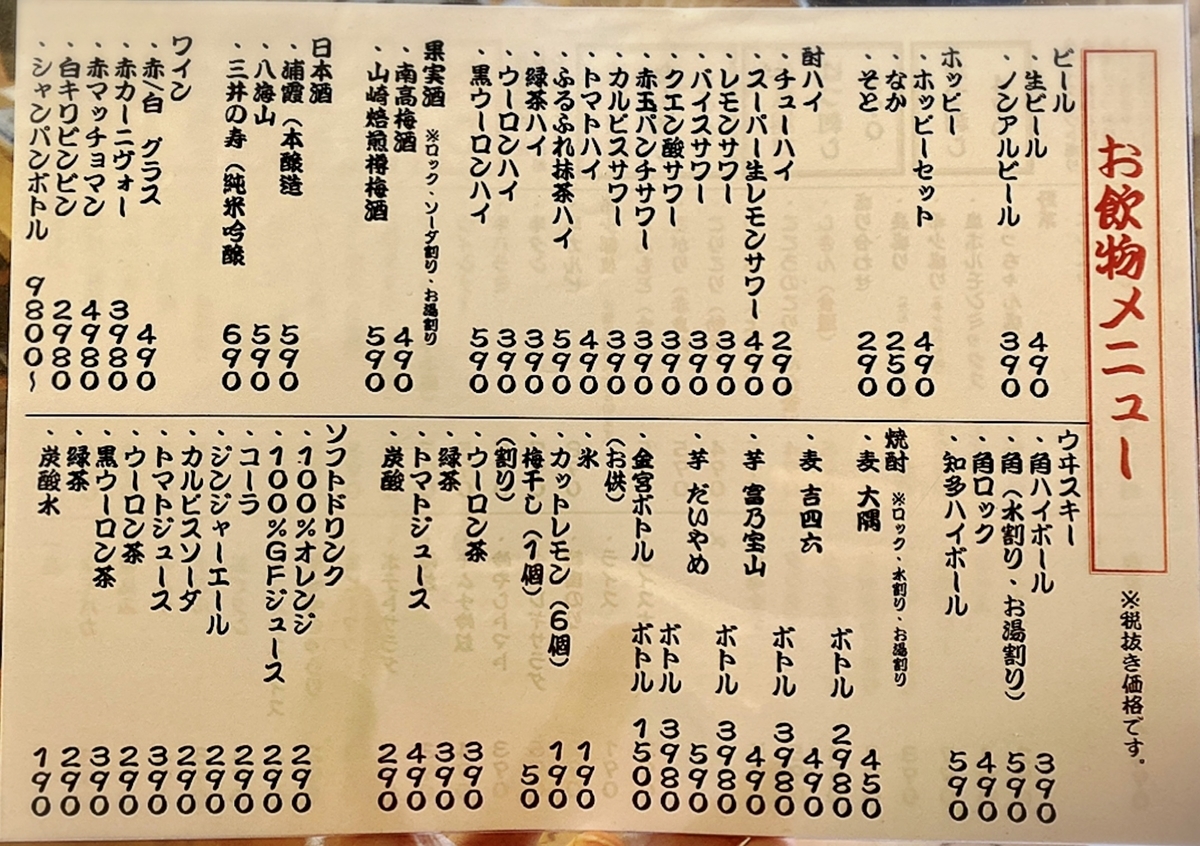 お飲物メニュー
※税抜き価格です。
ビール
・生ビール 490
・ノンアルビール 390
ホッピー
・ホッピーセット 490
・なか 250
・そと 290
酎ハイ
・チューハイ 290
・スーパー生レモンサワー 490
・レモンサワー 390
・バイスサワー 390
・クエン酸サワー 390
・赤玉パンチサワー 390
・カルピスサワー 390
・トマトハイ 490
・ふるふれ抹茶ハイ 590
・緑茶ハイ 390
・ウーロンハイ 390
・黒ウーロンハイ 590
果実酒 ※ロック・ソーダ割り・お湯割り
・南高梅酒 490
・山崎焙煎樽梅酒 590
日本酒
・浦霞（本醸造 590
・八海山 590
・三井の寿（純米吟醸 690
ワイン
・赤/白 グラス 490
・赤カーニヴォー 3980
・赤マッチョマン 4980
・白キリビンビン 2980
・シャンパンボトル 9800〜
ウヰスキー
・角ハイボール 390
・角（水割り・お湯割り） 590
・角ロック 490
・知多ハイボール 590
焼酎 ※ロック・水割り・お湯割り
・麦 大隅 450
ボトル 2980
・麦 吉四六 490
ボトル 3980
・芋 富乃宝山 490
ボトル 3980
・芋 だいやめ 590
ボトル 3980
・金宮ボトル ボトル 1500
（お供）
・氷 190
・カットレモン（6個） 190
・梅干し（1個） 50
（割り）
・ウーロン茶 390
・緑茶 390
・トマトジュース 490
・炭酸 290
ソフトドリンク
・100%オレンジ 290
・100%GFジュース 290
・コーラ 290
・ジンジャーエール 290
・カルピスソーダ 290
・トマトジュース 390
・ウーロン茶 290
・黒ウーロン茶 390
・緑茶 290
・炭酸水 190